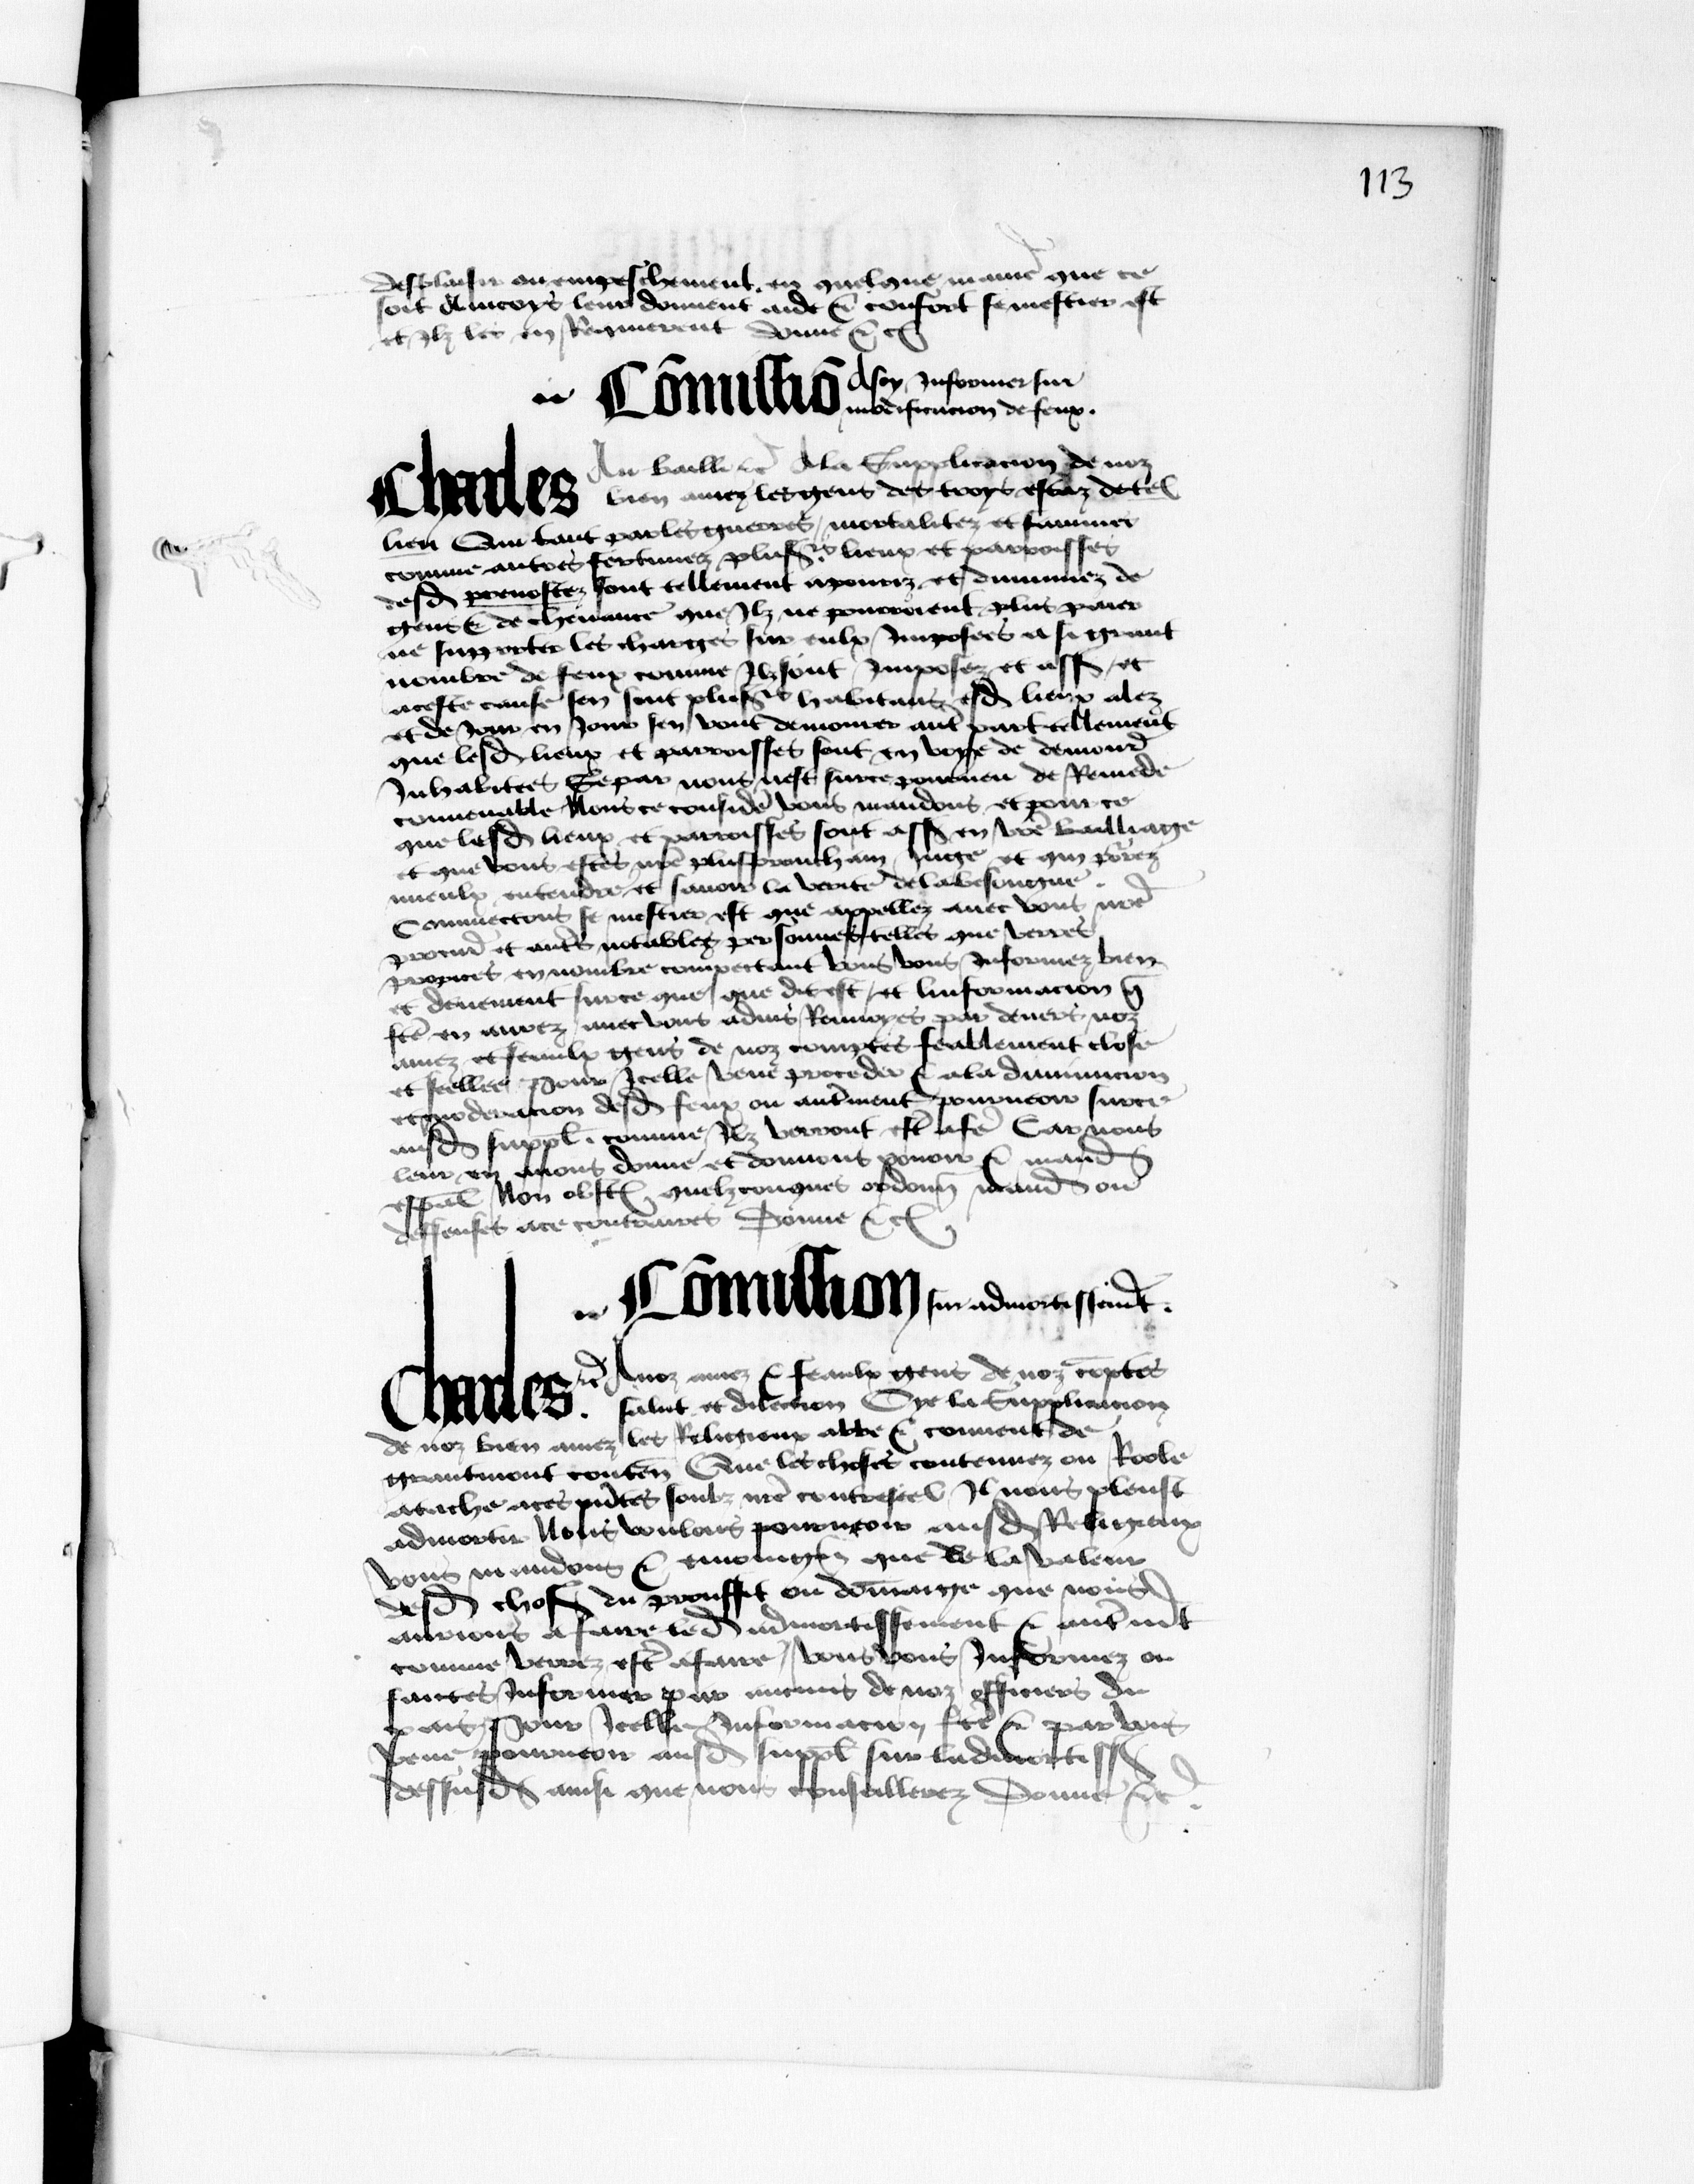 113
desplaisir ou empeschement en quelque maniē que ce
soit Aincoys leur donnent aide & confort se mestier est
et Ilz les en Requierent donne & cꝭ
Cōmissiō A soy Informer sur
modificacion de feux.
Charles Au bailli &c̄ A la Supplicacion de noz
bien amez les gens des troys estaz de tel
lieu Que tant par les guerres / mortalitez et famines
comme autres fortunes plusrs lieux et parroisses
desd prevostez sont tellement apouriz et diminuez de
gens & de chevance que Ilz ne pourroient plus paier
ne supporter les charges sur eulx Imposees a si grant
nombre de feux comme Ilz sont Imposez et ass / et
a ceste cause sen sont plusrs habitans esd lieux alez
et de Jour en Jour sen vont demourer aut part tellement
que lesd lieux et parroisses sont en voye de demour
Inhabitees Se par nous nest sur ce pourveu de Remede
convenable Nous ce consideŕ vous mandons et pour ce
que lesd lieux et parroisses sont ass en vrē bailliage
et que vous estes nrē plus prouchain Juge et qui pōrez
mieulx entendre et savoir la verite de la besongne.
Commectons se mestier est que appellez avec vous nrē
procur et autrs notables personnes telles que verres
propices en nombre competant vous vous Informez bien
et deuement sur ce que que dit est / et linformacion q̄
fcē en aurez avec vous advis Renvoyes par devers noz
amez et feaulx gens de noz comptes feablement close
et seellee Pour Icelle veue proceder & a la diminucion
et moderacion desd feux ou autrement pourveoir sur ce
ausd suppl. comme Ilz verront estr a fē Car nous
leur en avons donne et donnons povoir & mand
espāl Non obst quelzconques ordonn mand ou
deffenses a ce contraires Donne & cꝭ
Cōmission sur admortissemt.
Charles. &c̄ A noz amez & feaulx gens de noz cōptes
salut et dilection Oye la Supplicacion
de noz bien amez les Religieux abbe & convent de
grantmont conten Que les choses contenues ou Roole
atache a ces pn̄tes soubz nrē contreseel Il nous pleust
admortir Nous voulons pourveoir ausd Religieux
vous mandons & que de la valeur
desd chos du prouffit ou dōmaige que nous
aurions a faire led admortissement & autremt
comme verrez estr a faire / vous vous Informez ou
faictes Informer par aucuns de noz officiers du
pais Pour Icelle Informacion fcē & par vous
veue pourveoir ausd suppl sur ladmortiss
dessusd ainsi que nous conseillerez Donne &c̄.